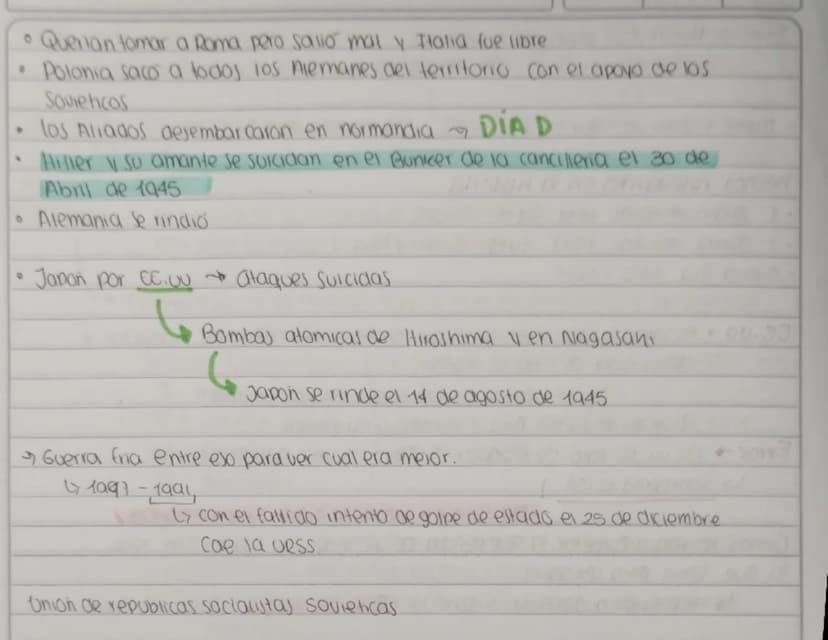 ° Querian tomar a Roma pero salió mal y Italia fue libre
• Polonia sacó a todos los Alemanes del territorio con el apoyo de los
Sovieticos
• los Aliados desembarcaron en normandia → DÍA D
• Hitler y su amante se suicidan en el Bunker de la cancilleria el 30 de
Abril de 1945
° Alemania se rindió
• Japón por EE.UU → ataques suicidas
Bombas atomicas de Hiroshima y en Nagasaki
Japón se rinde el 14 de agosto de 1945
→ Guerra fria entre eso para ver cual era mejor.
↳ 1947 - 1991
↳ con el fallido intento de golpe de estado el 25 de diciembre
Cae la URSS
Unión de republicas socialistas sovieticas